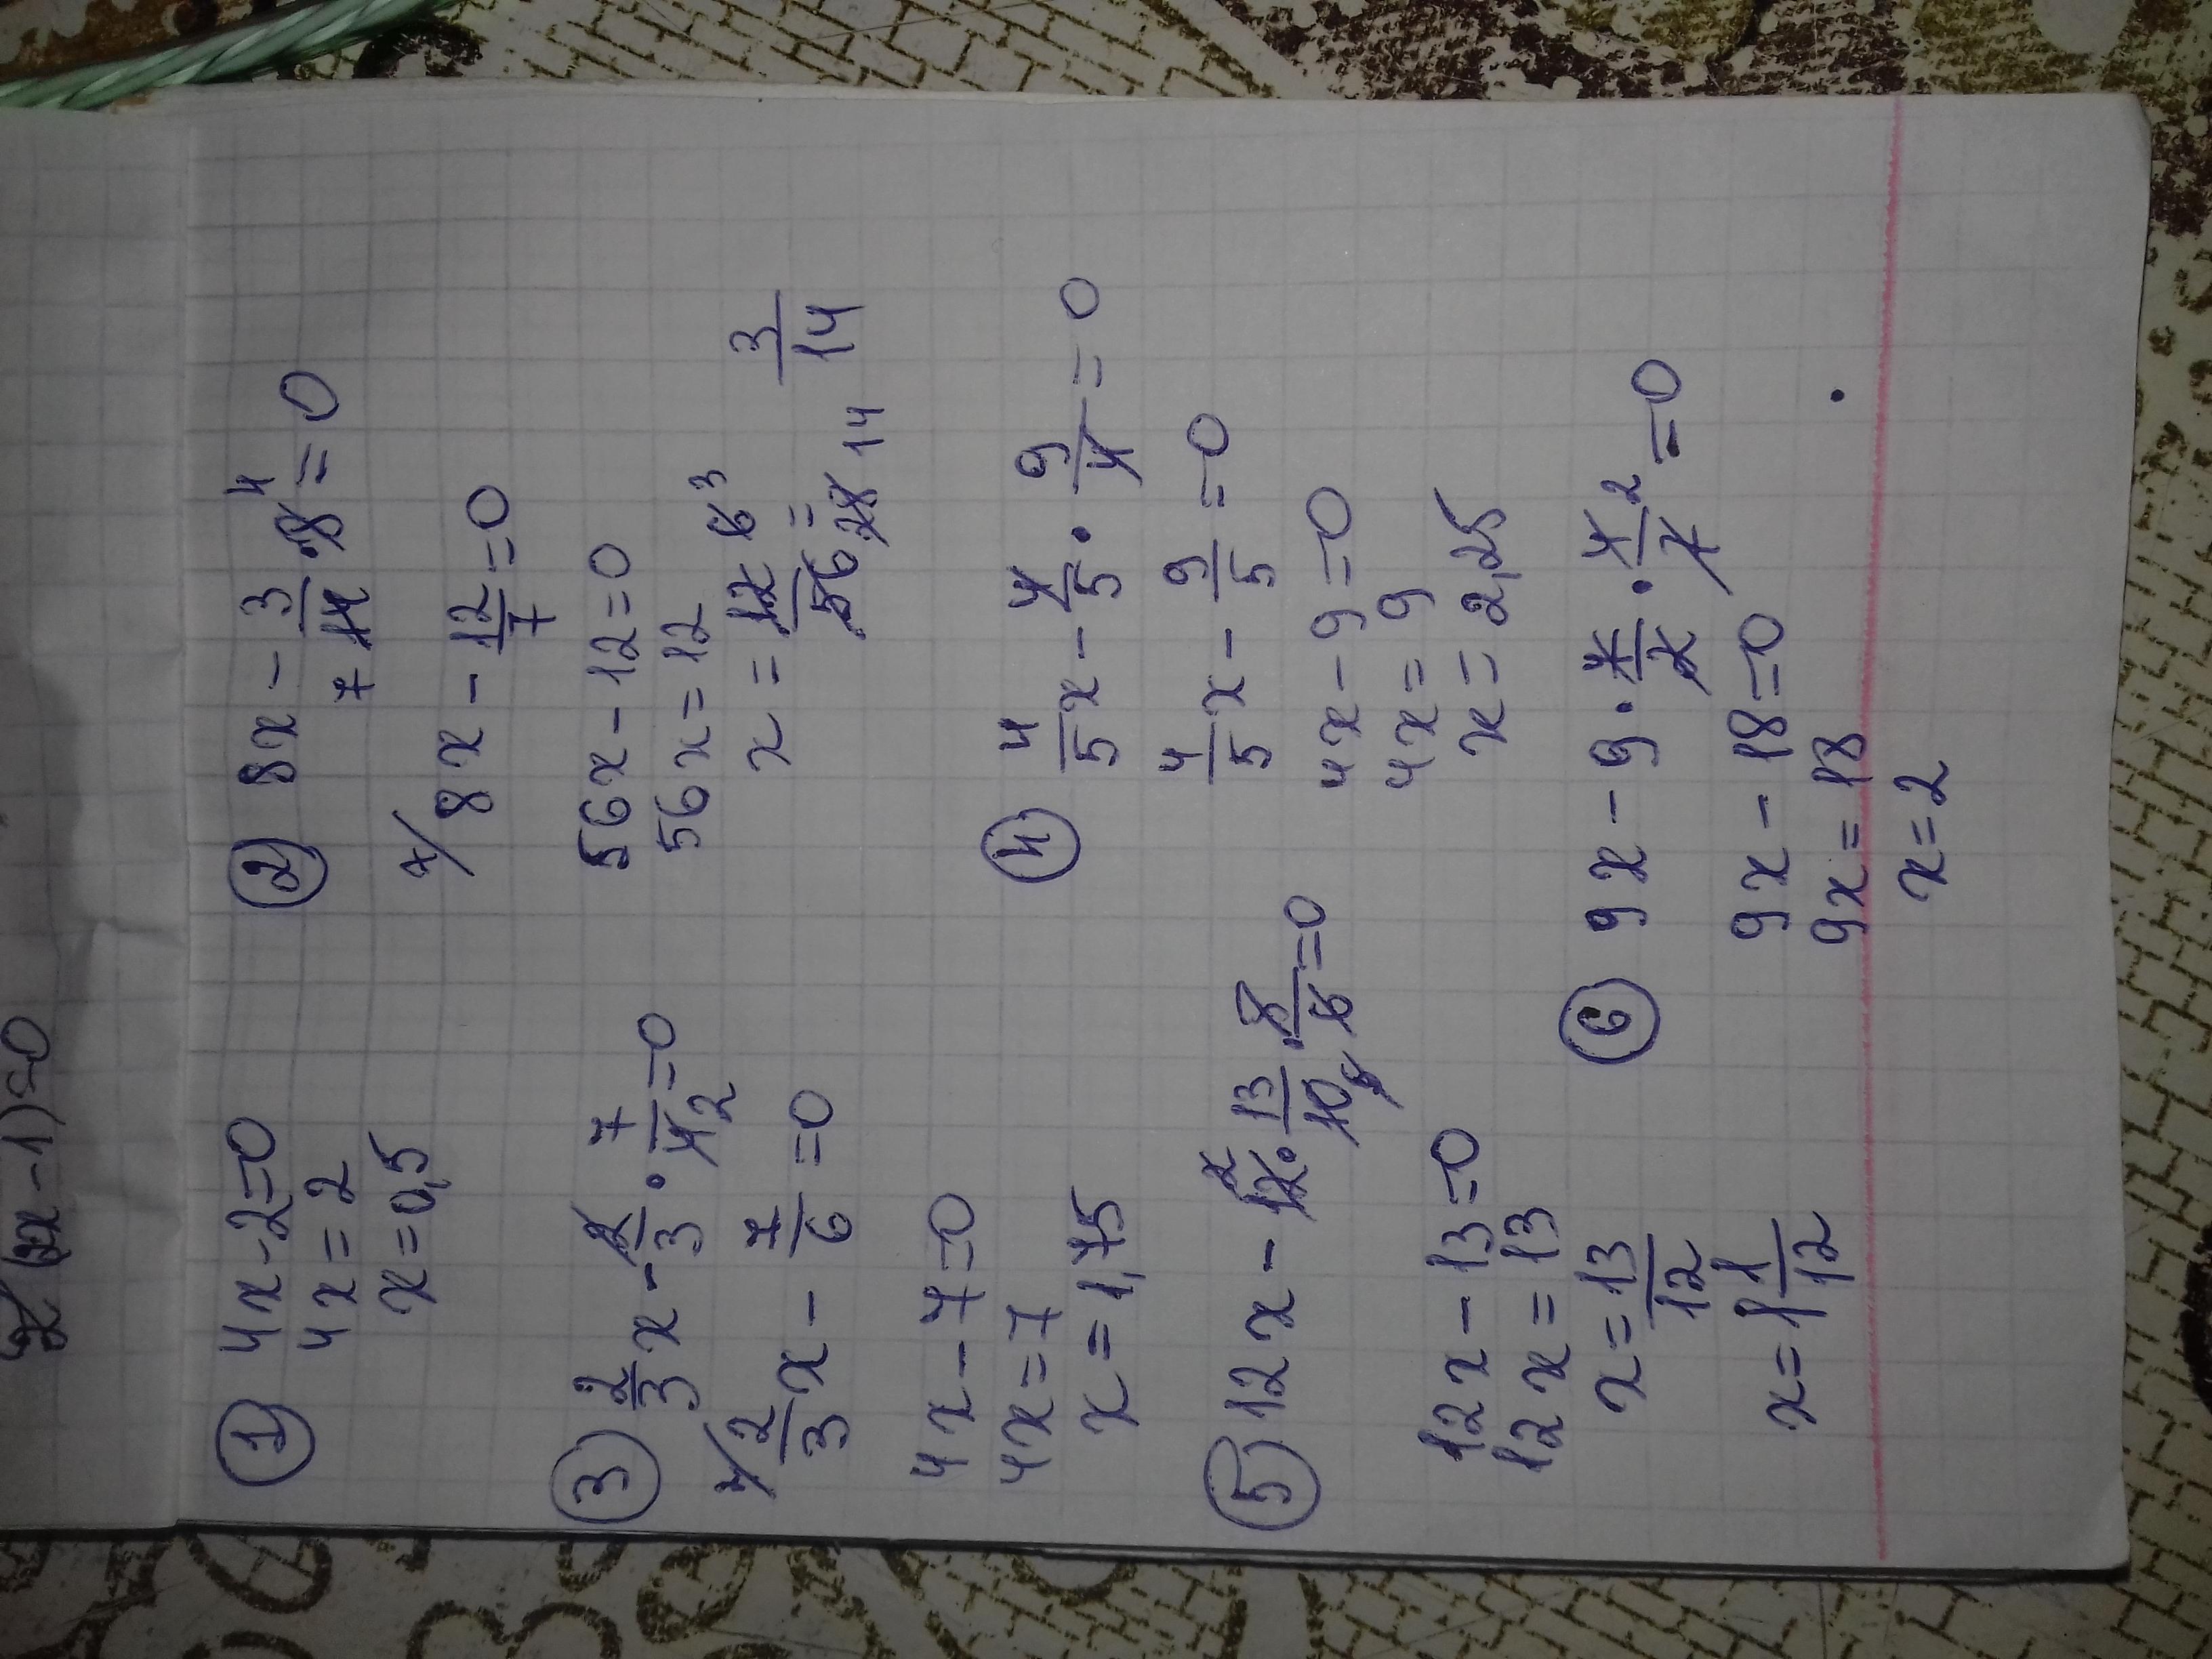 2(2x-1)=0
① 4x-2=0
4x=2
x=0,5
② 8x - 3/14 · 8 = 0
7 4
7/ 8x - 12/7 = 0
56x-12=0
56x=12
x = 12/56 = 3/14
6 3
28 14
③ 2/3 x - 2/3 · 7/4 = 0
2
4/ 2/3 x - 7/6 = 0
4x-7=0
4x=7
x=1,75
④ 4/5 x - 4/5 · 9/4 = 0
4/5 x - 9/5 = 0
4x-9=0
4x=9
x=2,25
⑤ 12x - 12 · 13/10 · 5/6 = 0
12x-13=0
12x=13
x = 13/12
x = 1 1/12
⑥ 9x - 9 · 7/2 · 4/7 = 0
2
9x-18=0
9x=18
x=2